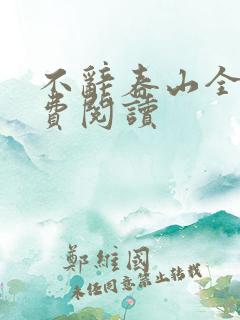 不辭泰山全
費閱讀
鄭維國
未经同意禁止转载